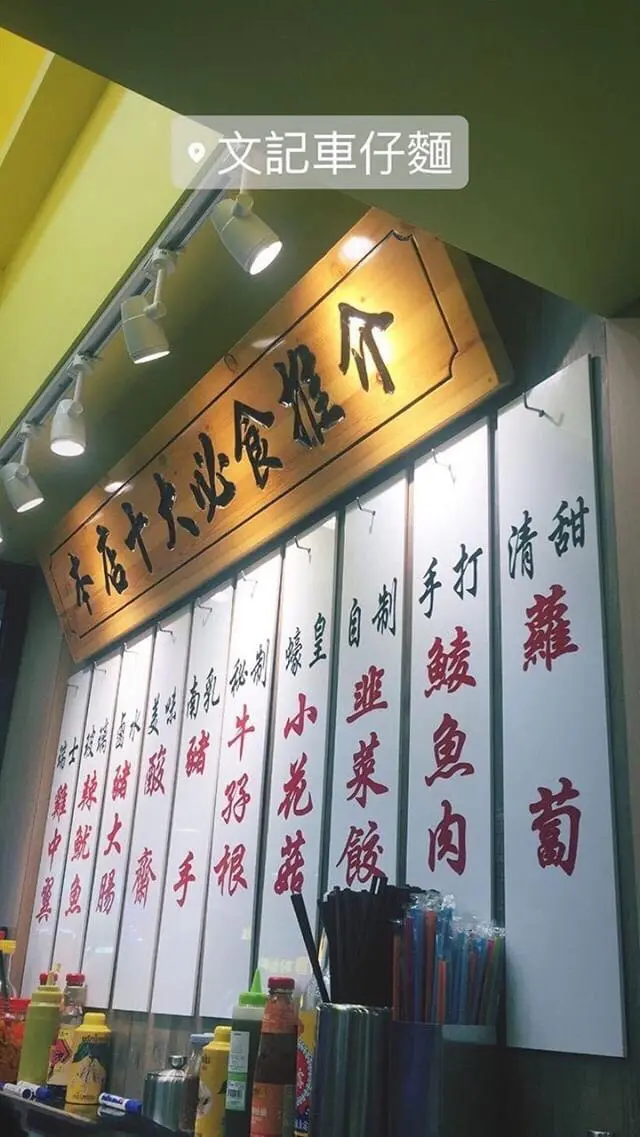 文記車仔麵
本店十大必食推介
瑞士雞中翼
玻璃辣魷魚
鹵水豬大腸
美味酸齋
南乳豬手
秘制牛孖根
蠔皇小花菇
自制韭菜餃
手打鯪魚肉
清甜蘿蔔